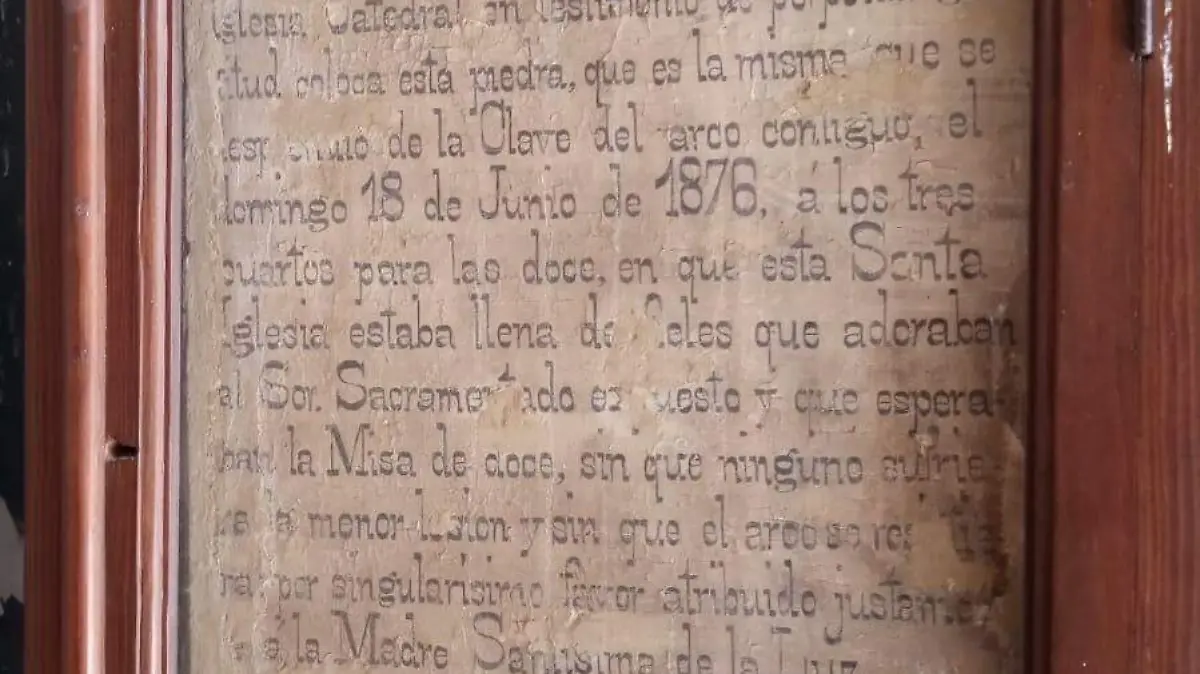 Iglesia Catedral en testimonio de
titud coloca esta piedra, que es la misma que se
de la Clave del arco contiguo, el
domingo 18 de Junio de 1876, á los tres
cuartos para las doce, en que esta Santa
Iglesia estaba llena de fieles que adoraban
al Sor. Sacramentado expuesto y que espera-
ban la Misa de doce, sin que ninguno sufrie
ra la menor lesion y sin que el arco se
ra: por singularisimo favor atribuido justamen
te á la Madre Santisima de la Luz